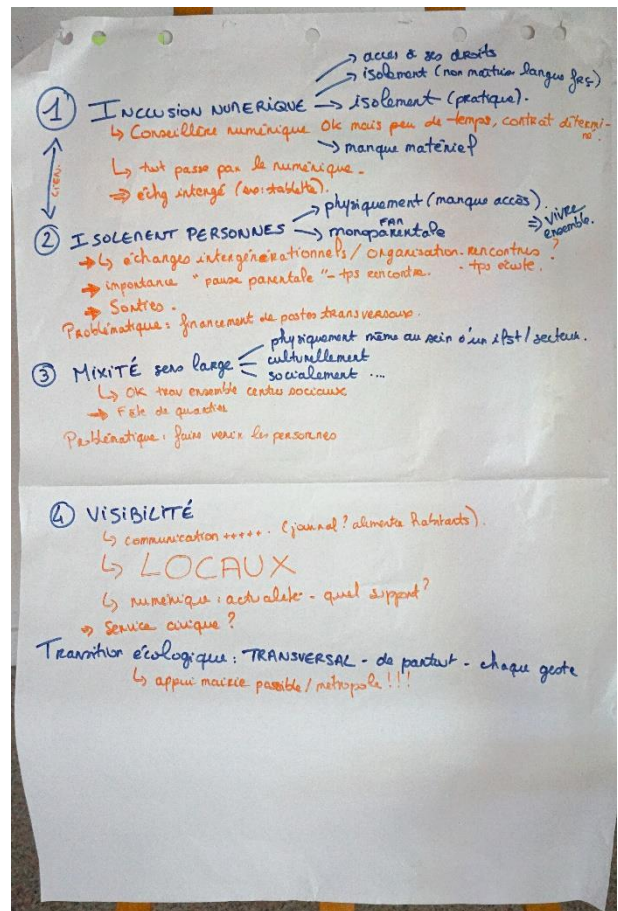 → accès à ses droits
→ isolement (non maîtrise langue frç)
① INCLUSION NUMERIQUE → isolement (pratique).
↳ Conseillère numérique OK mais peu de temps, contrat déterminé.
→ manque matériel
↳ tout passe par le numérique.
⇒ échg intergé (exo: tablette).
LIEN.
→ physiquement (manque accès).
② ISOLEMENT PERSONNES → FAM monoparentale ⇒ vivre ensemble.
→↳ échanges intergénérationnels / organisation rencontres ?
→ importance "pause parentale" - tps rencontre. - tps écoute.
→ Sorties.
Problématique : financement de postes transversaux.
physiquement même au sein d'un /secteur.
③ MIXITÉ sens large culturellement
socialement ....
↳ OK trav ensemble centres sociaux
→ Fête de quartier
Problématique : faire venir les personnes
④ VISIBILITÉ
↳ communication +++++. (journal ? alimenter habitants).
↳ LOCAUX
↳ numérique : actualité - quel support ?
→ Service civique ?
Transition écologique : TRANSVERSAL - de partout - chaque geste
↳ appui mairie possible / métropole !!!